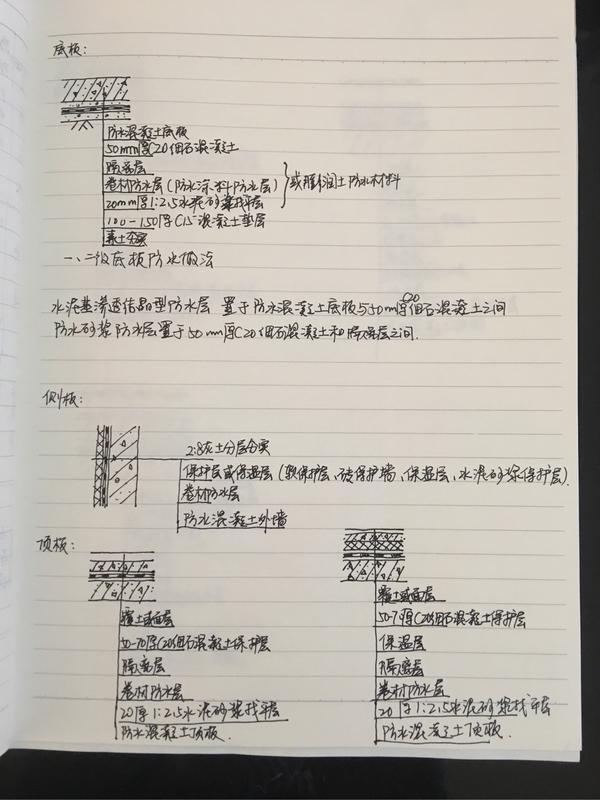 底板:
防水混凝土底板
50mm厚C20细石混凝土
隔离层
卷材防水层(防水涂料防水层) 或膨润土防水材料
20mm厚1:2.5水泥砂浆找平层
100-150厚C15混凝土垫层
素土夯实
一、二级底板防水做法
水泥基渗透结晶型防水层 置于防水混凝土底板与50mm厚C20细石混凝土之间
防水砂浆防水层置于50mm厚C20细石混凝土和隔离层之间.
侧板:
2:8灰土分层夯实
保护层或保温层(软保护层、砖保护墙、保温层、水泥砂浆保护层).
卷材防水层
防水混凝土外墙
顶板:
覆土或面层
50-70厚C20细石混凝土保护层
隔离层
卷材防水层
20厚1:2.5水泥砂浆找平层
防水混凝土顶板.
覆土或面层
50-7厚C20细石混凝土保护层
保温层
隔离层
卷材防水层
20厚1:2.5水泥砂浆找平层
防水混凝土顶板.